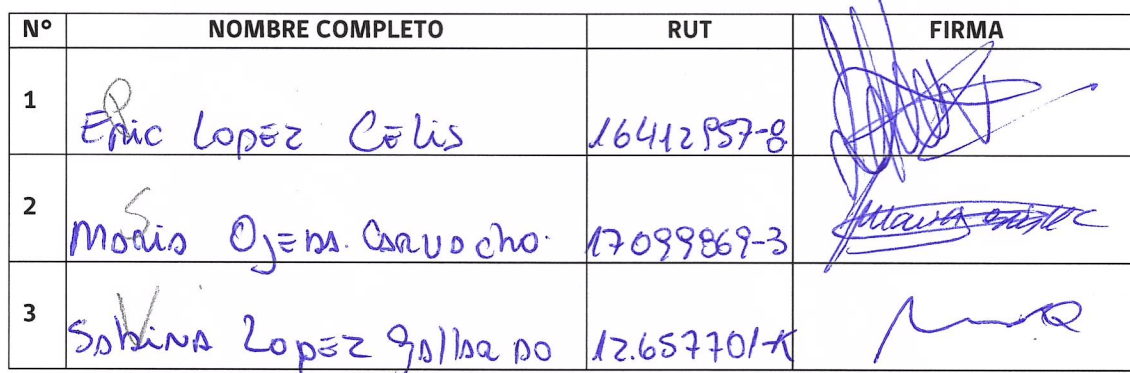 N° NOMBRE COMPLETO RUT FIRMA
1 Eric Lopez Celis 16412957-8
2 Mario Ojeda Carvacho 17099869-3
3 Sabina Lopez Gallardo 12.657701-K